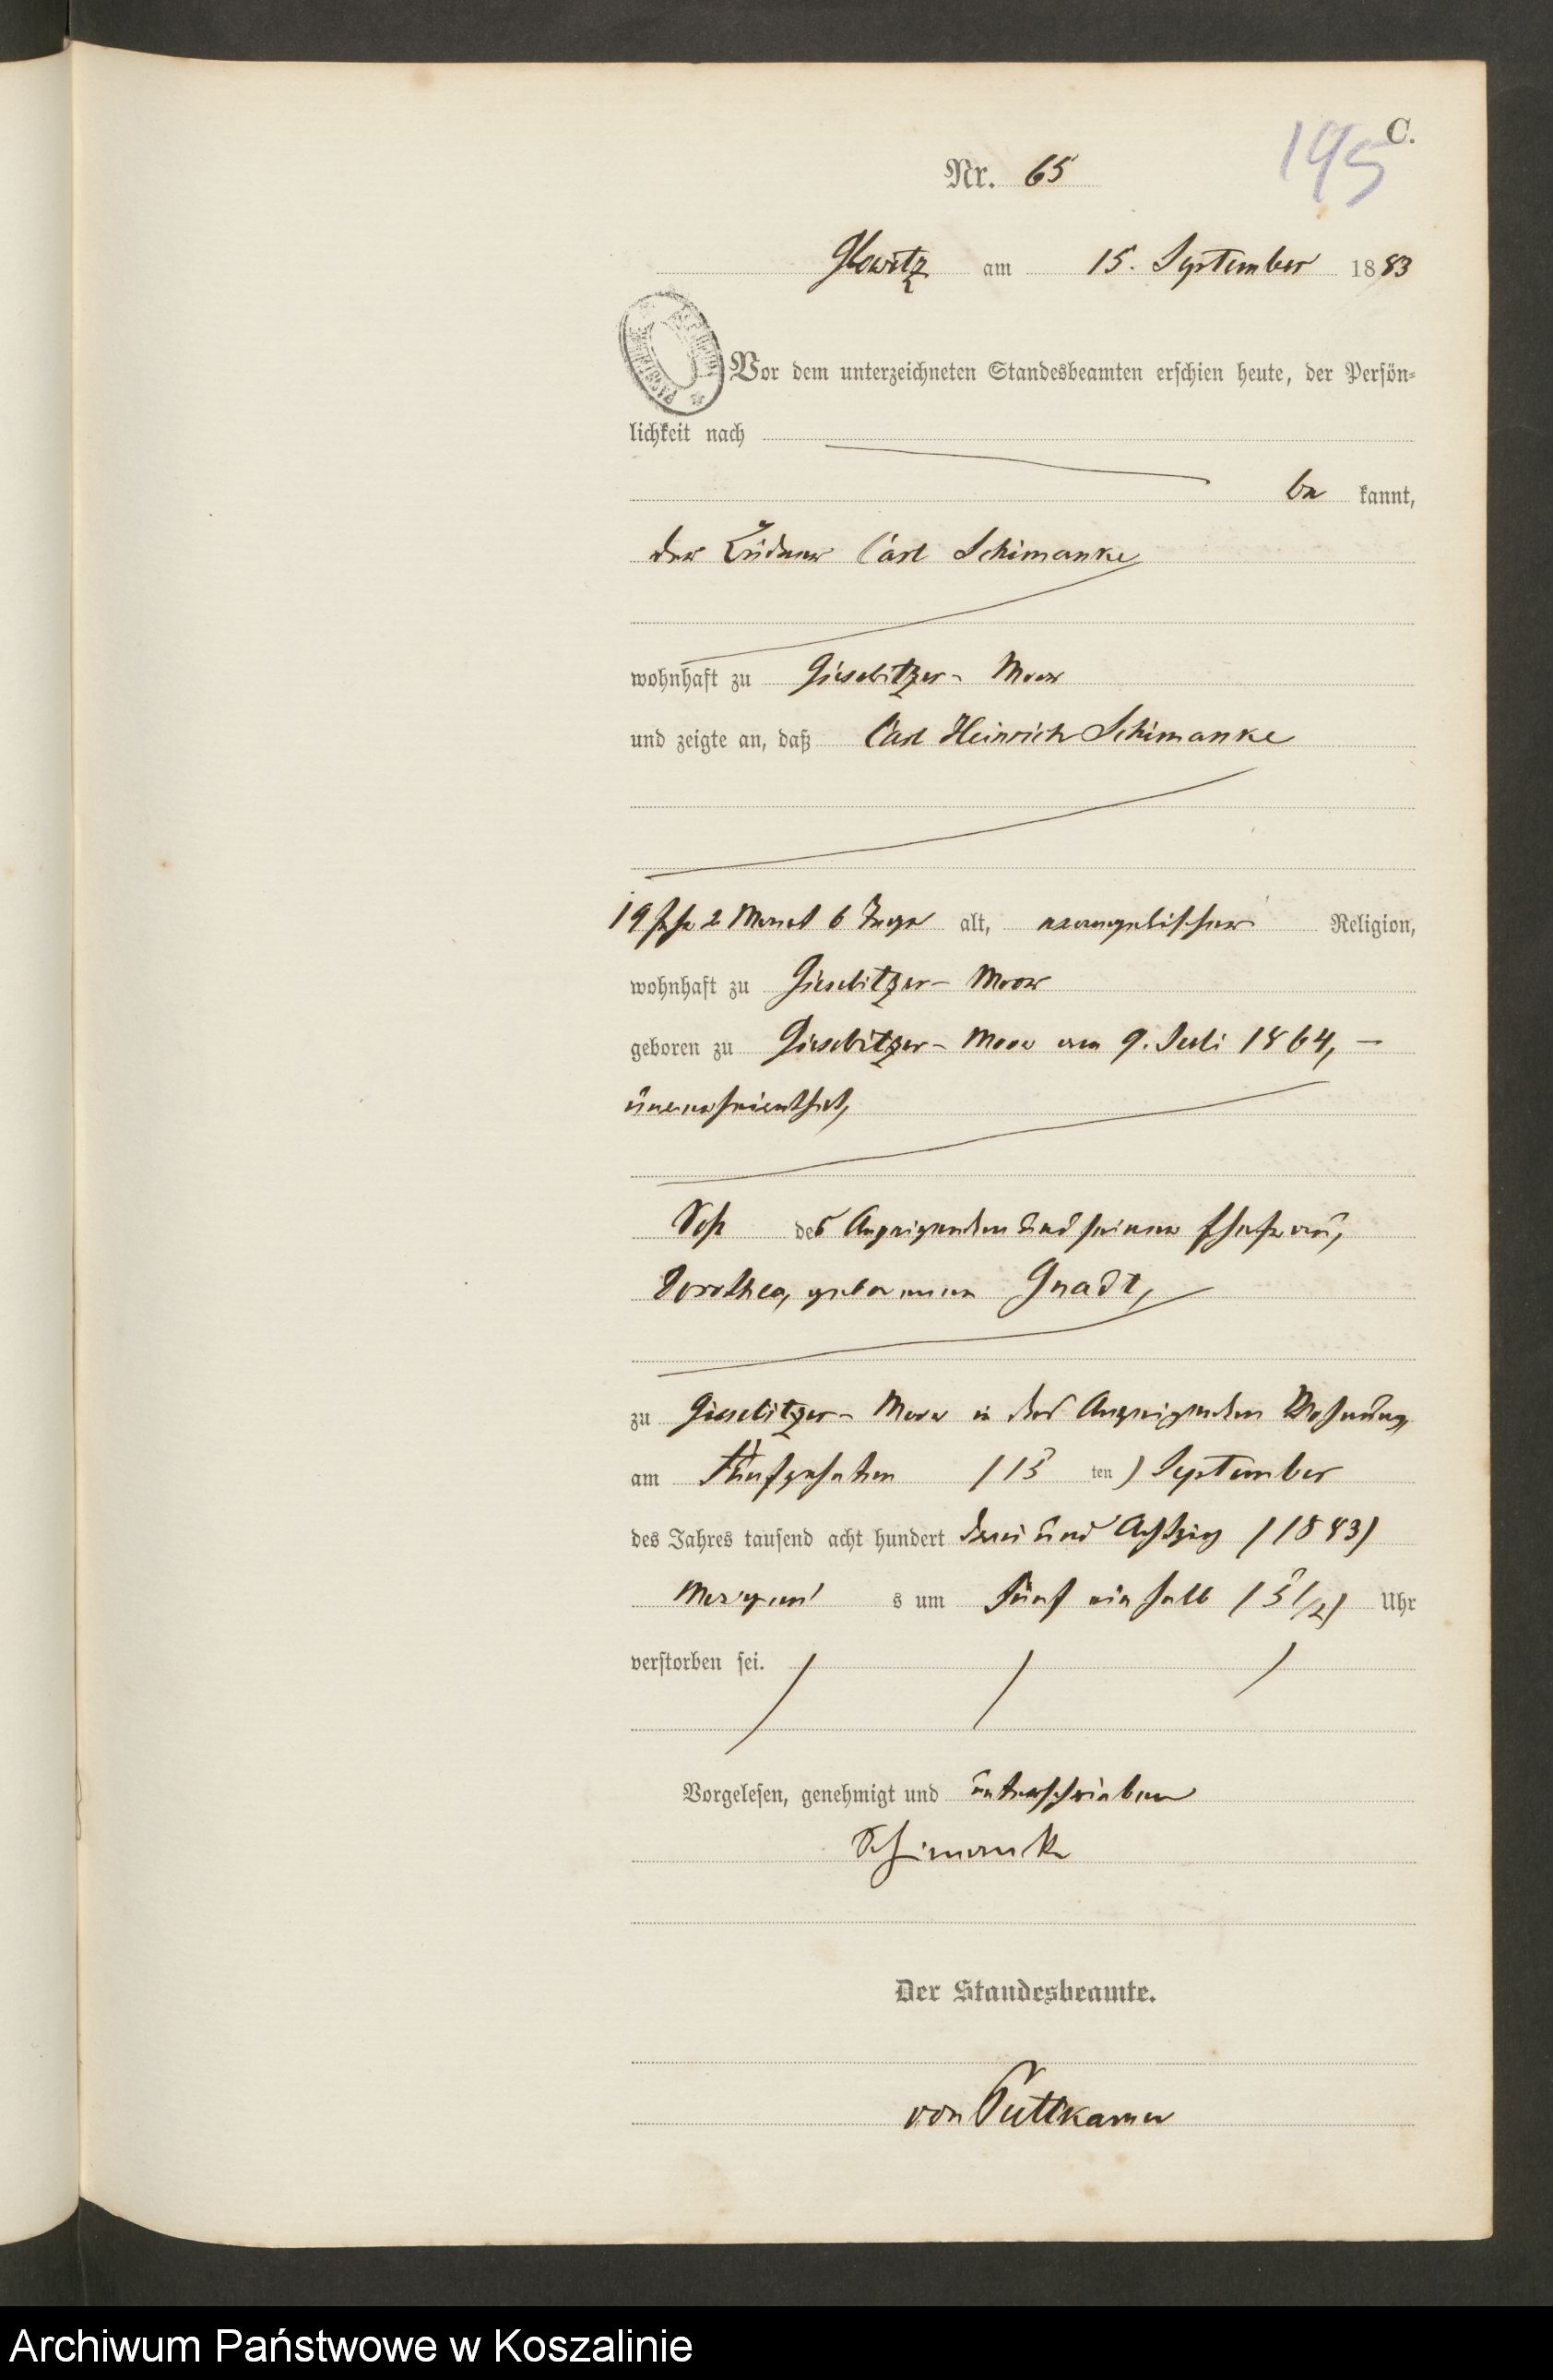 C.
195
Nr. 65
Glowitz am 15. September 1883
Vor dem unterzeichneten Standesbeamten erschien heute, der Persön-
lichkeit nach
be kannt,
der Büdner Carl Schimanke
wohnhaft zu Gieselitzer- Moor
und zeigte an, daß Carl Heinrich Schimanke
19 Jahr 2 Monat 6 Tage alt, evangelischer Religion,
wohnhaft zu Gieselitzer- Moor
geboren zu Gieselitzer- Moor am 9. Juli 1864, –
unverheirathet,
Sohn des Anzeigenden und seiner Ehefrau,
Dorothea, geborenen Gnadt,
zu Gieselitzer- Moor in des Anzeigenden Wohnung,
am Fünfzehnten (15 ten) September
des Jahres tausend acht hundert drei und Achtzig (1883)
Morgens s um Fünf ein halb (5 1/2) Uhr
verstorben sei.
Vorgelesen, genehmigt und unterschrieben
Schimank
Der Standesbeamte.
von Puttkamer
Archiwum Państwowe w Koszalinie